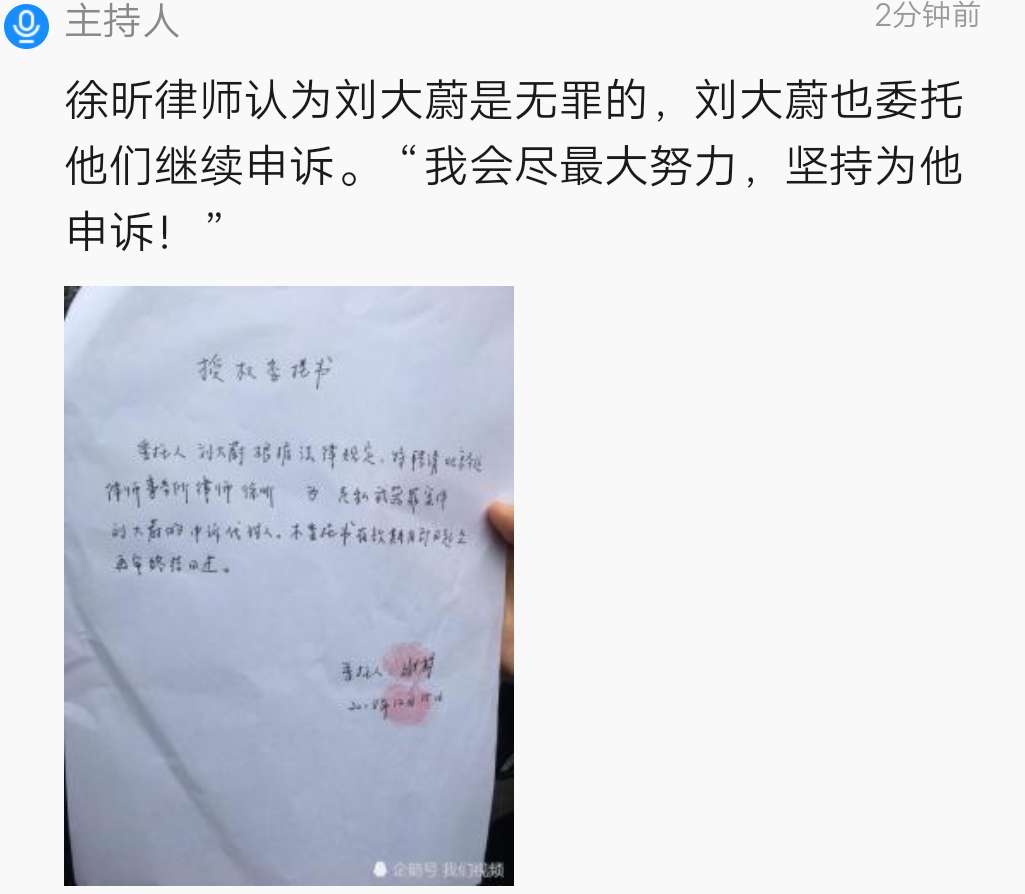 主持人
2分钟前
徐昕律师认为刘大蔚是无罪的，刘大蔚也委托
他们继续申诉。“我会尽最大努力，坚持为他
申诉！”
授权委托书
委托人 刘大蔚根据法律规定，特聘请北京
律师事务所律师 徐昕 为 走私武器罪案件
刘大蔚的申诉代理人。本委托书有效期自即日起至
再审终结日止。
委托人
2018年12月25日
企鹅号 我们视频